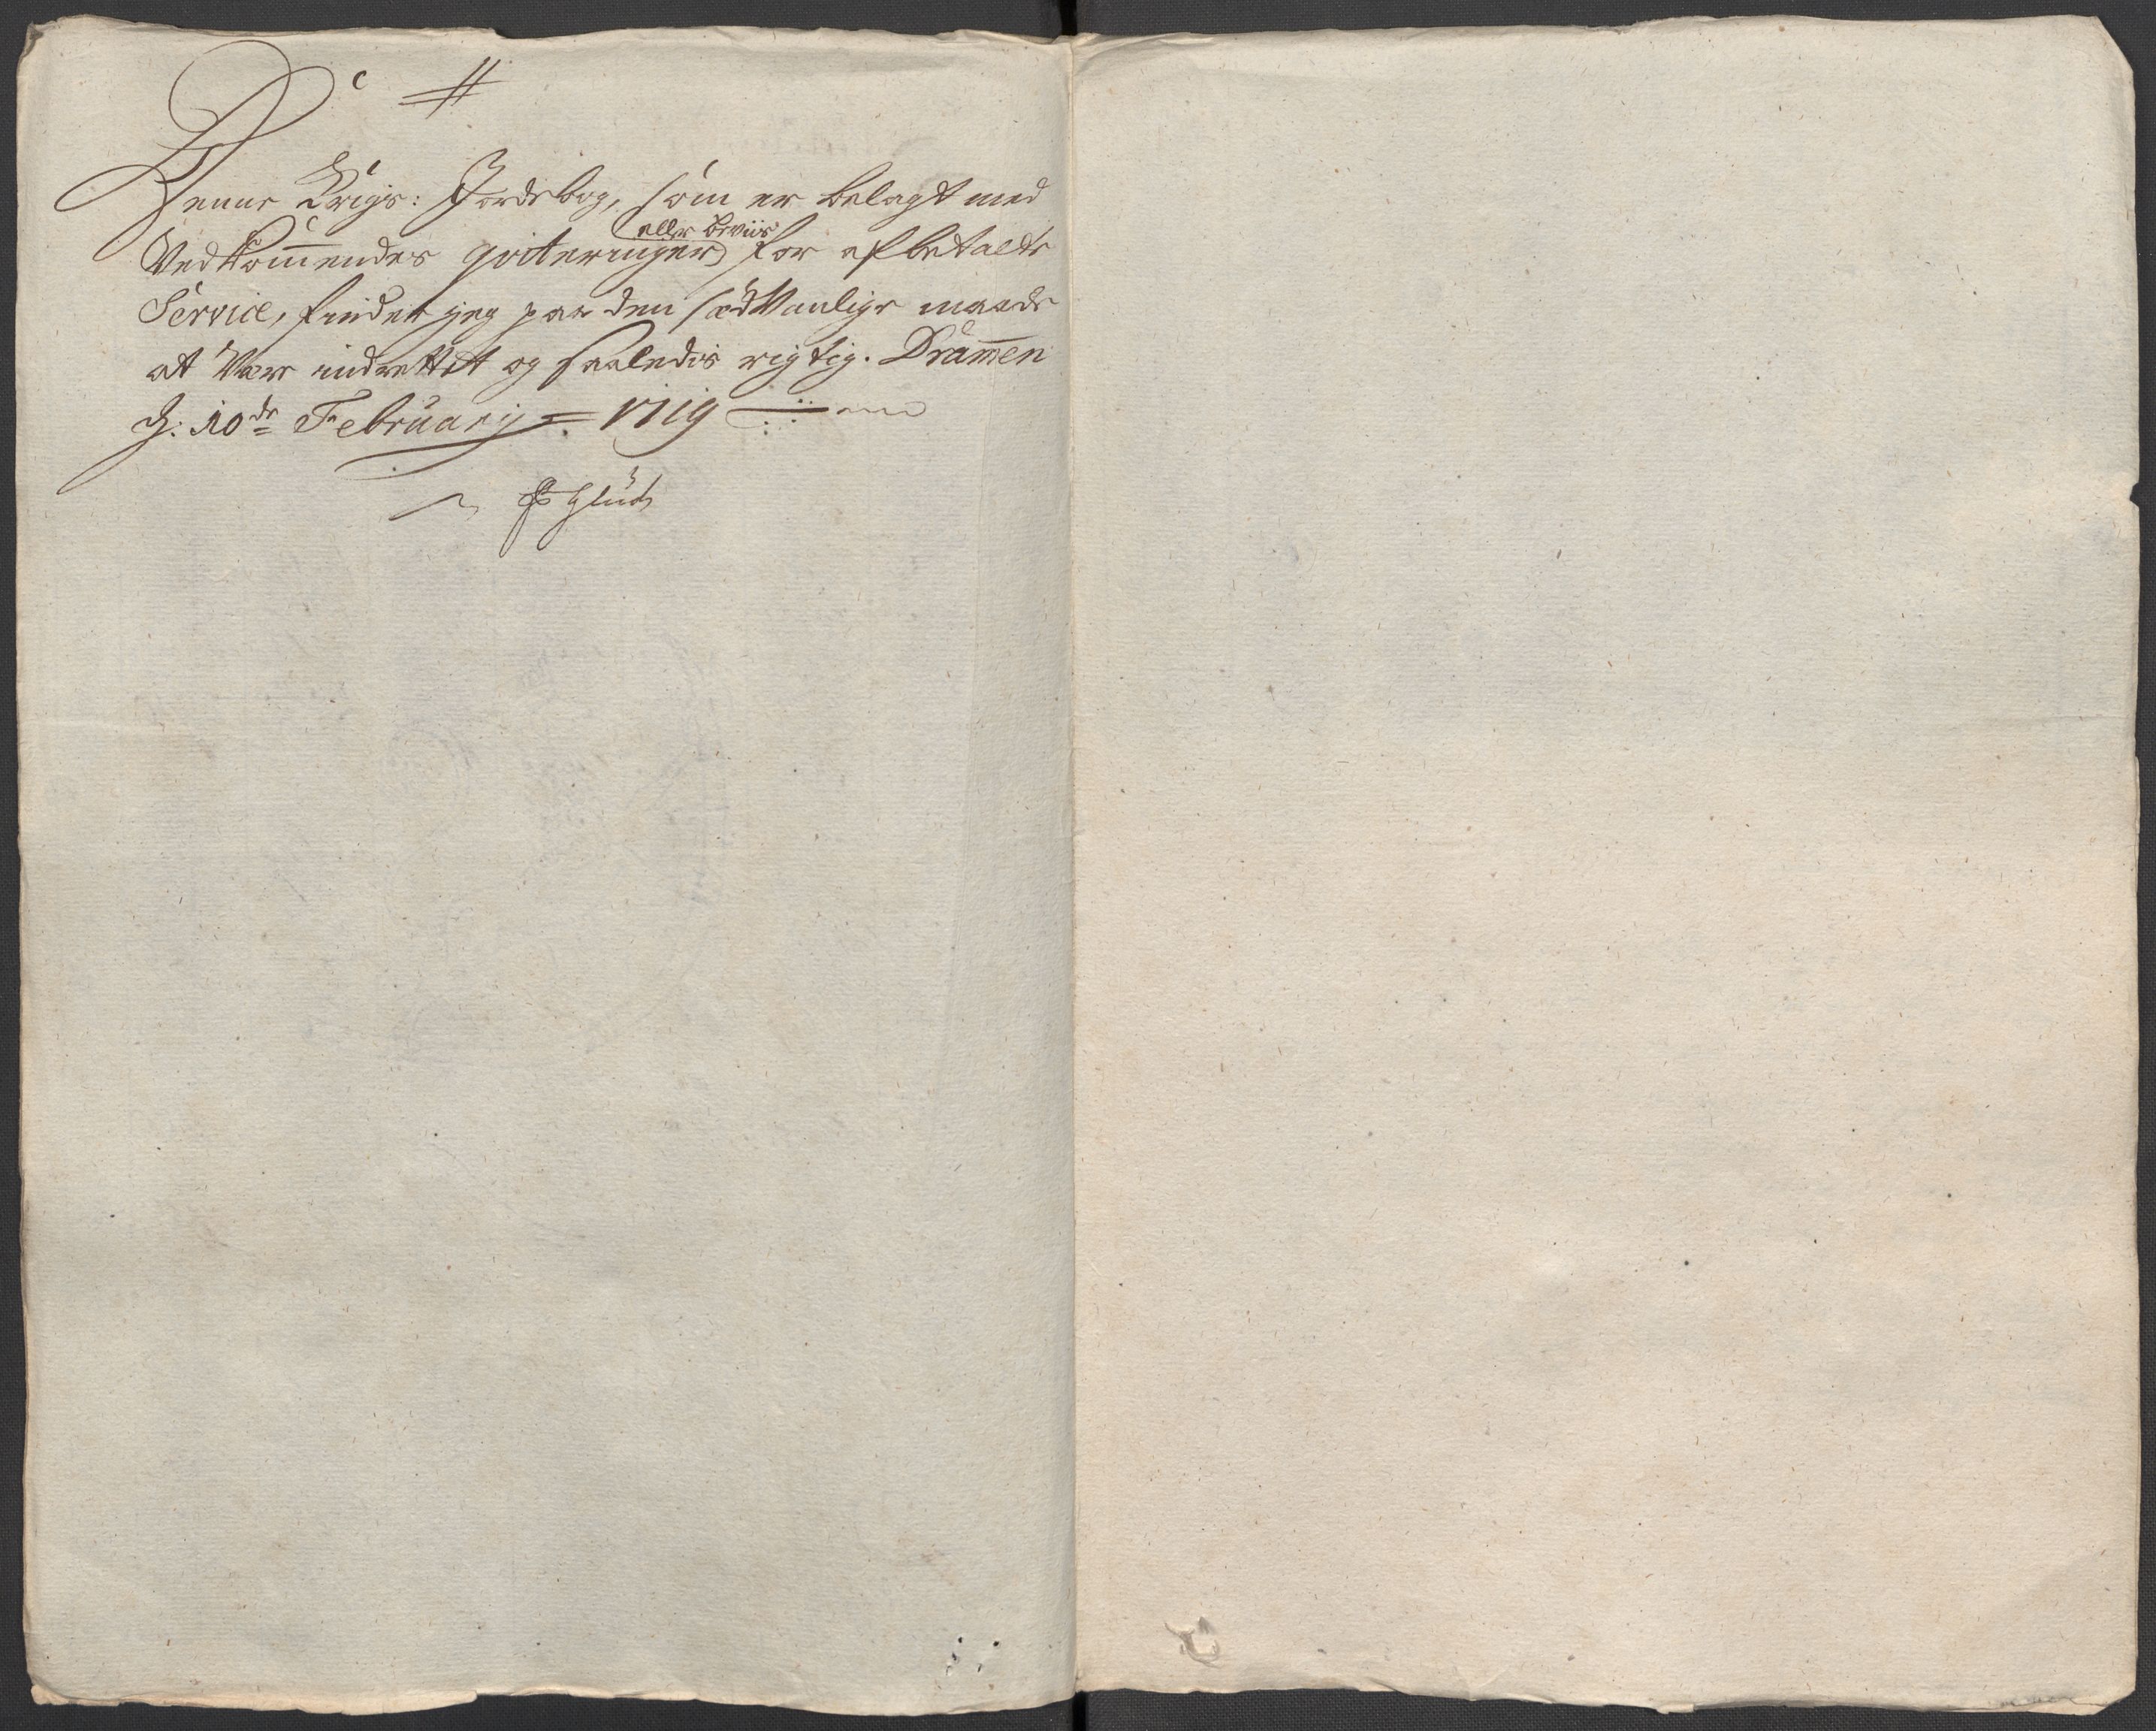 #
Denne Krigs: Jordebog, som er belagt med
Vedkom̅endes qvitteringer eller beviis for afbetalte
Service, findes jeg paa den sædvanlige maade
at Være indrettet og saaledis rigtig. Dram̅en
d: 10de February = 1719
Glud